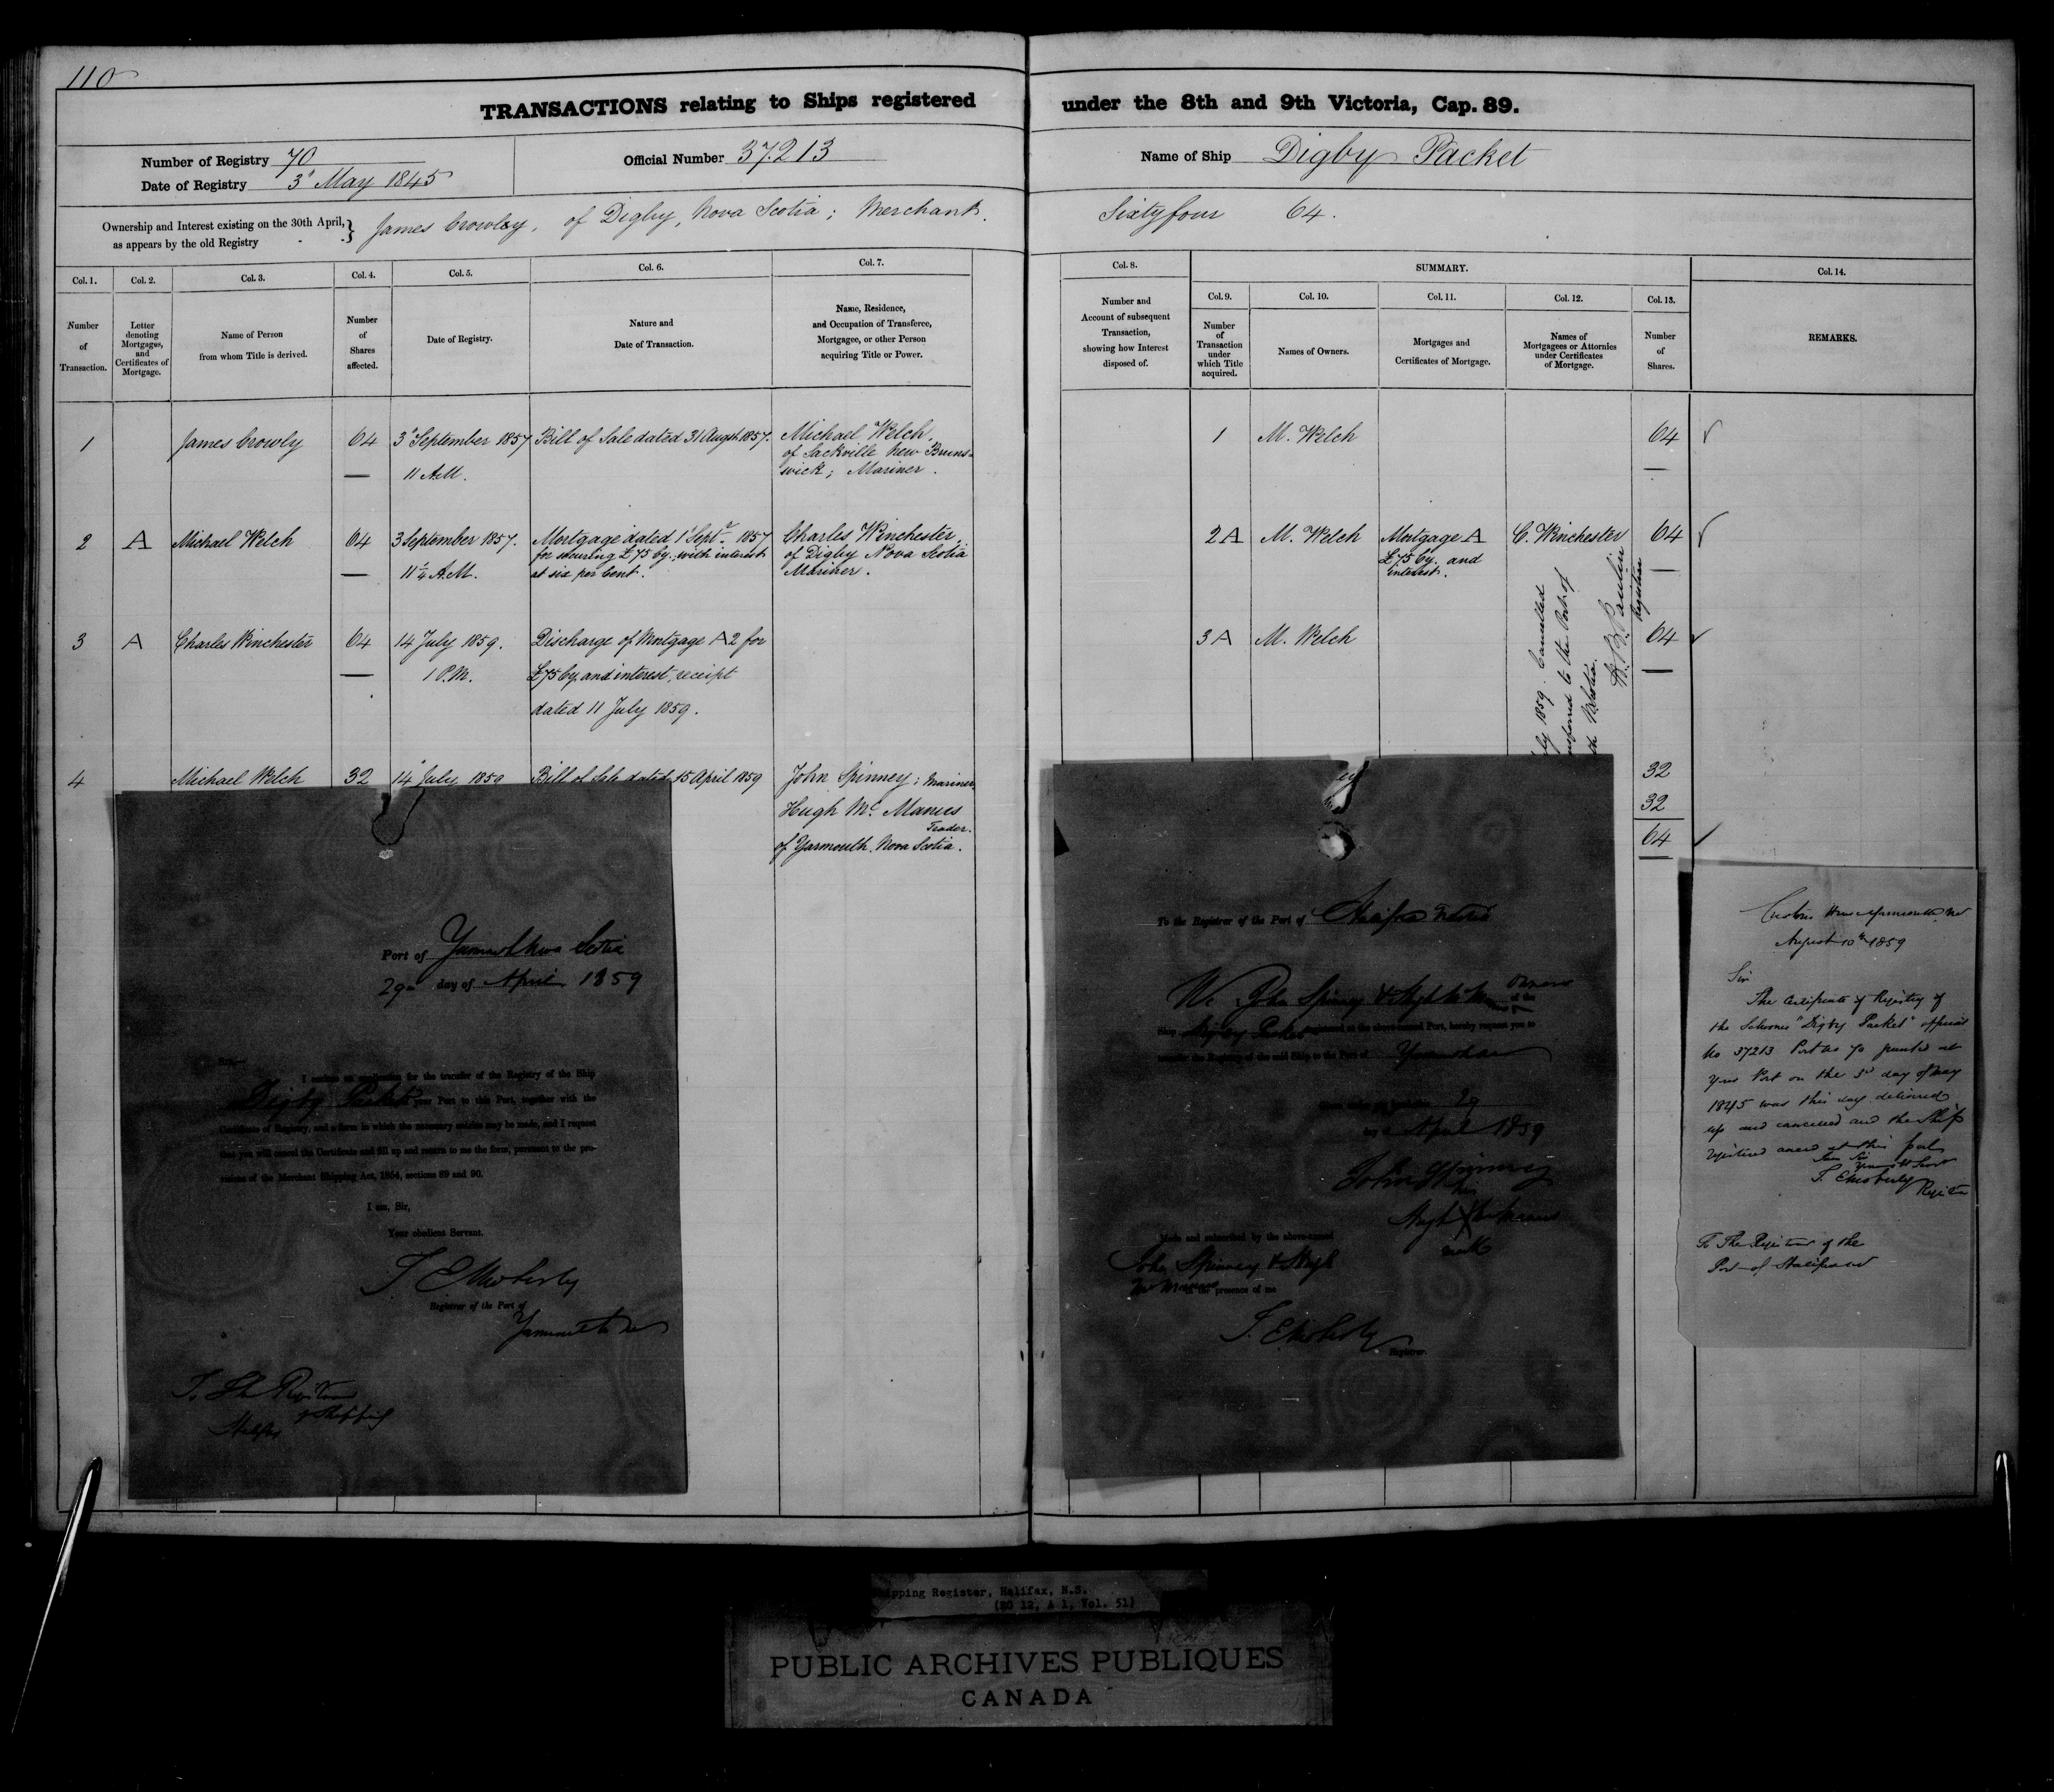 110
TRANSACTIONS relating to Ships registered under the 8th and 9th Victoria, Cap. 89.
Number of Registry 70
Date of Registry 3d May 1845
Official Number 37.213
Name of Ship Digby Packet
Ownership and Interest existing on the 30th April, as appears by the old Registry } James Crowley, of Digby, Nova Scotia; Merchant. Sixty four 64.
Col. 1. Col. 2. Col. 3. Col. 4. Col. 5. Col. 6. Col. 7. Col. 8. SUMMARY. Col. 14.
Col. 9. Col. 10. Col. 11. Col. 12. Col. 13.
Number of Transaction.
Letter denoting Mortgages, and Certificates of Mortgage.
Name of Person from whom Title is derived.
Number of Shares affected.
Date of Registry.
Nature and Date of Transaction.
Name, Residence, and Occupation of Transferee, Mortgagee, or other Person acquiring Title or Power.
Number and Account of subsequent Transaction, showing how Interest disposed of.
Number of Transaction under which Title acquired.
Names of Owners.
Mortgages and Certificates of Mortgage.
Names of Mortgagees or Attornies under Certificates of Mortgage.
Number of Shares.
REMARKS.
1 James Crowly 64 3d September 1857 11 A.M. Bill of Sale dated 31 Augst 1857. Michael Welch, of Sackville New Brunswick; Mariner. 1 M. Welch 64
2 A Michael Welch 64 3 September 1857. 11¼ A.M. Mortgage dated 1 Septr 1857 for securing £75 Cy. with interest at six per Cent. Charles Winchester, of Digby Nova Scotia Mariner. 2 A M. Welch Mortgage A £75 Cy. and interest. C. Winchester 64
3 A Charles Winchester 64 14 July 1859. 1 P.M. Discharge of Mortgage A 2 for £75 Cy. and interest, receipt dated 11 July 1859. 3 A M. Welch 64
4 Michael Welch 32 14 July 1859 Bill of Sale dated 15 April 1859 John Spinney; Mariner, Hugh Mc Manus Trader. of Yarmouth. Nova Scotia. 32
32
64
1859. Cancelled
to the Port of
Registrar
Port of Yarmouth Nova Scotia
29th day of April 1859
Sir,—
I enclose an application for the transfer of the Registry of the Ship
Digby Packet your Port to this Port, together with the
Certificate of Registry, and a form in which the necessary entries may be made, and I request
that you will cancel the Certificate and fill up and return to me the form, pursuant to the pro-
visions of the Merchant Shipping Act, 1854, sections 89 and 90.
I am, Sir,
Your obedient Servant.
Registrar of the Port of
To The Registrar
of Shipping
Halifax
To the Registrar of the Port of Halifax
We John Spinney & Hugh Mc Manus Owners of the
Ship Digby Packet registered at the above-named Port, hereby request you to
transfer the Registry of the said Ship to the Port of Yarmouth
29
April 1859
John Spinney
his
Hugh X Mc Manus
mark
Made and subscribed by the above-named
John Spinney & Hugh
Mc Manus in the presence of me
Registrar.
Customs House Yarmouth NS
August 10th 1859
Sir
The Certificate of Registry of
the Schooner "Digby Packet" official
No 37213 Port No 70 granted at
your Port on the 3rd day of May
1845 was this day delivered
up and cancelled and the Ship
registered anew at this port
To The Registrar of the
Port of Halifax
ipping Register, Halifax, N.S.
(RG 12, A 1, Vol. 51)
PUBLIC ARCHIVES PUBLIQUES
CANADA